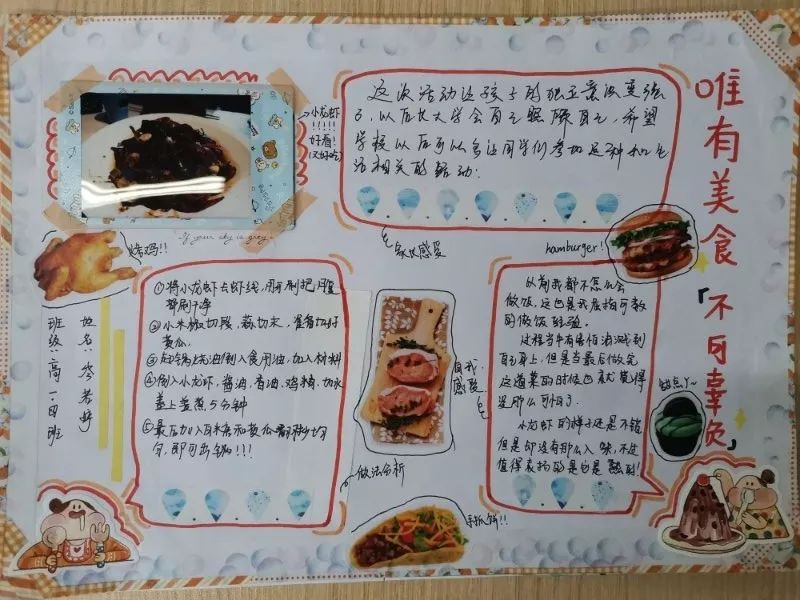 唯有美食
「不可辜负」
小龙虾
!!!!!
好看!
(又好吃)
这次活动让孩子的独立意识变强
了,以后长大学会自己照顾自己,希望
学校以后可以多让同学们参加这种和生
活相关的活动.
家长感受
"If your sky is grey,
烤鸡!!
hamburger!
姓名:
班级:高一
①将小龙虾去虾线,用牙刷把
刷干净
②小米椒切段,蒜切末,准备切好
黄瓜.
③起锅烧油倒入食用油,加入材料
④倒入小龙虾,酱油,香油,鸡精,
盖上盖煮5分钟
⑤最后加入
匀,即可出锅!!!
做法分析
自我
感受
以前我都不怎么会
做饭,这也是我屈指可数
的做饭经验.
过程当中有害怕油溅到
自己身上,但是当最后做完
这道菜的时候也就觉得
没那么可怕了.
小龙虾的样子还是不错
但是却没有那么入味,不过
值得表扬的是它是熟的!
甜点
手抓饼!!